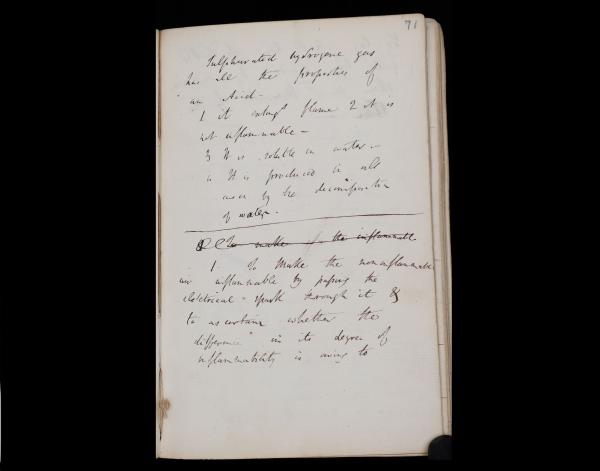 71
Sulphurated hydrogene gas
has all the properties of
an Acid -
1 it exting.s flame 2 it is
not inflammable -
3 It is soluble in water -
It is produced in all
cases by the decomposition
of water.
To make the inflammable
1 To make the noninflammable
air inflammable by passing the
electrical spark through it &
to ascertain whether the
difference in its degree of
inflammability is owing to